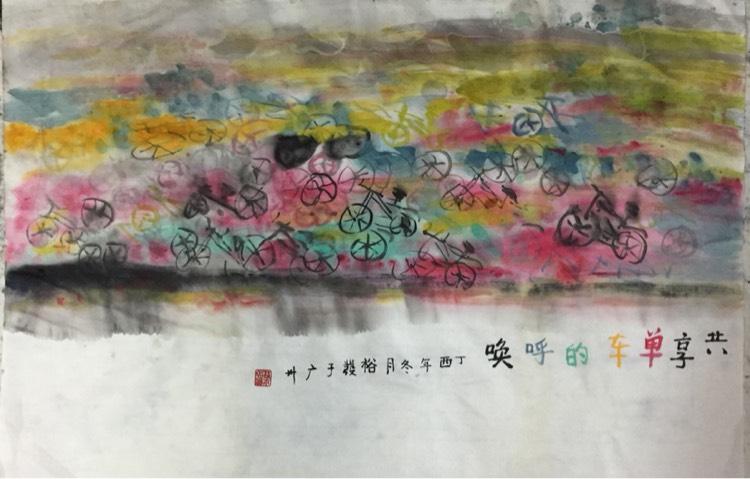 共享单车的呼唤 丁酉年冬月裕于广州